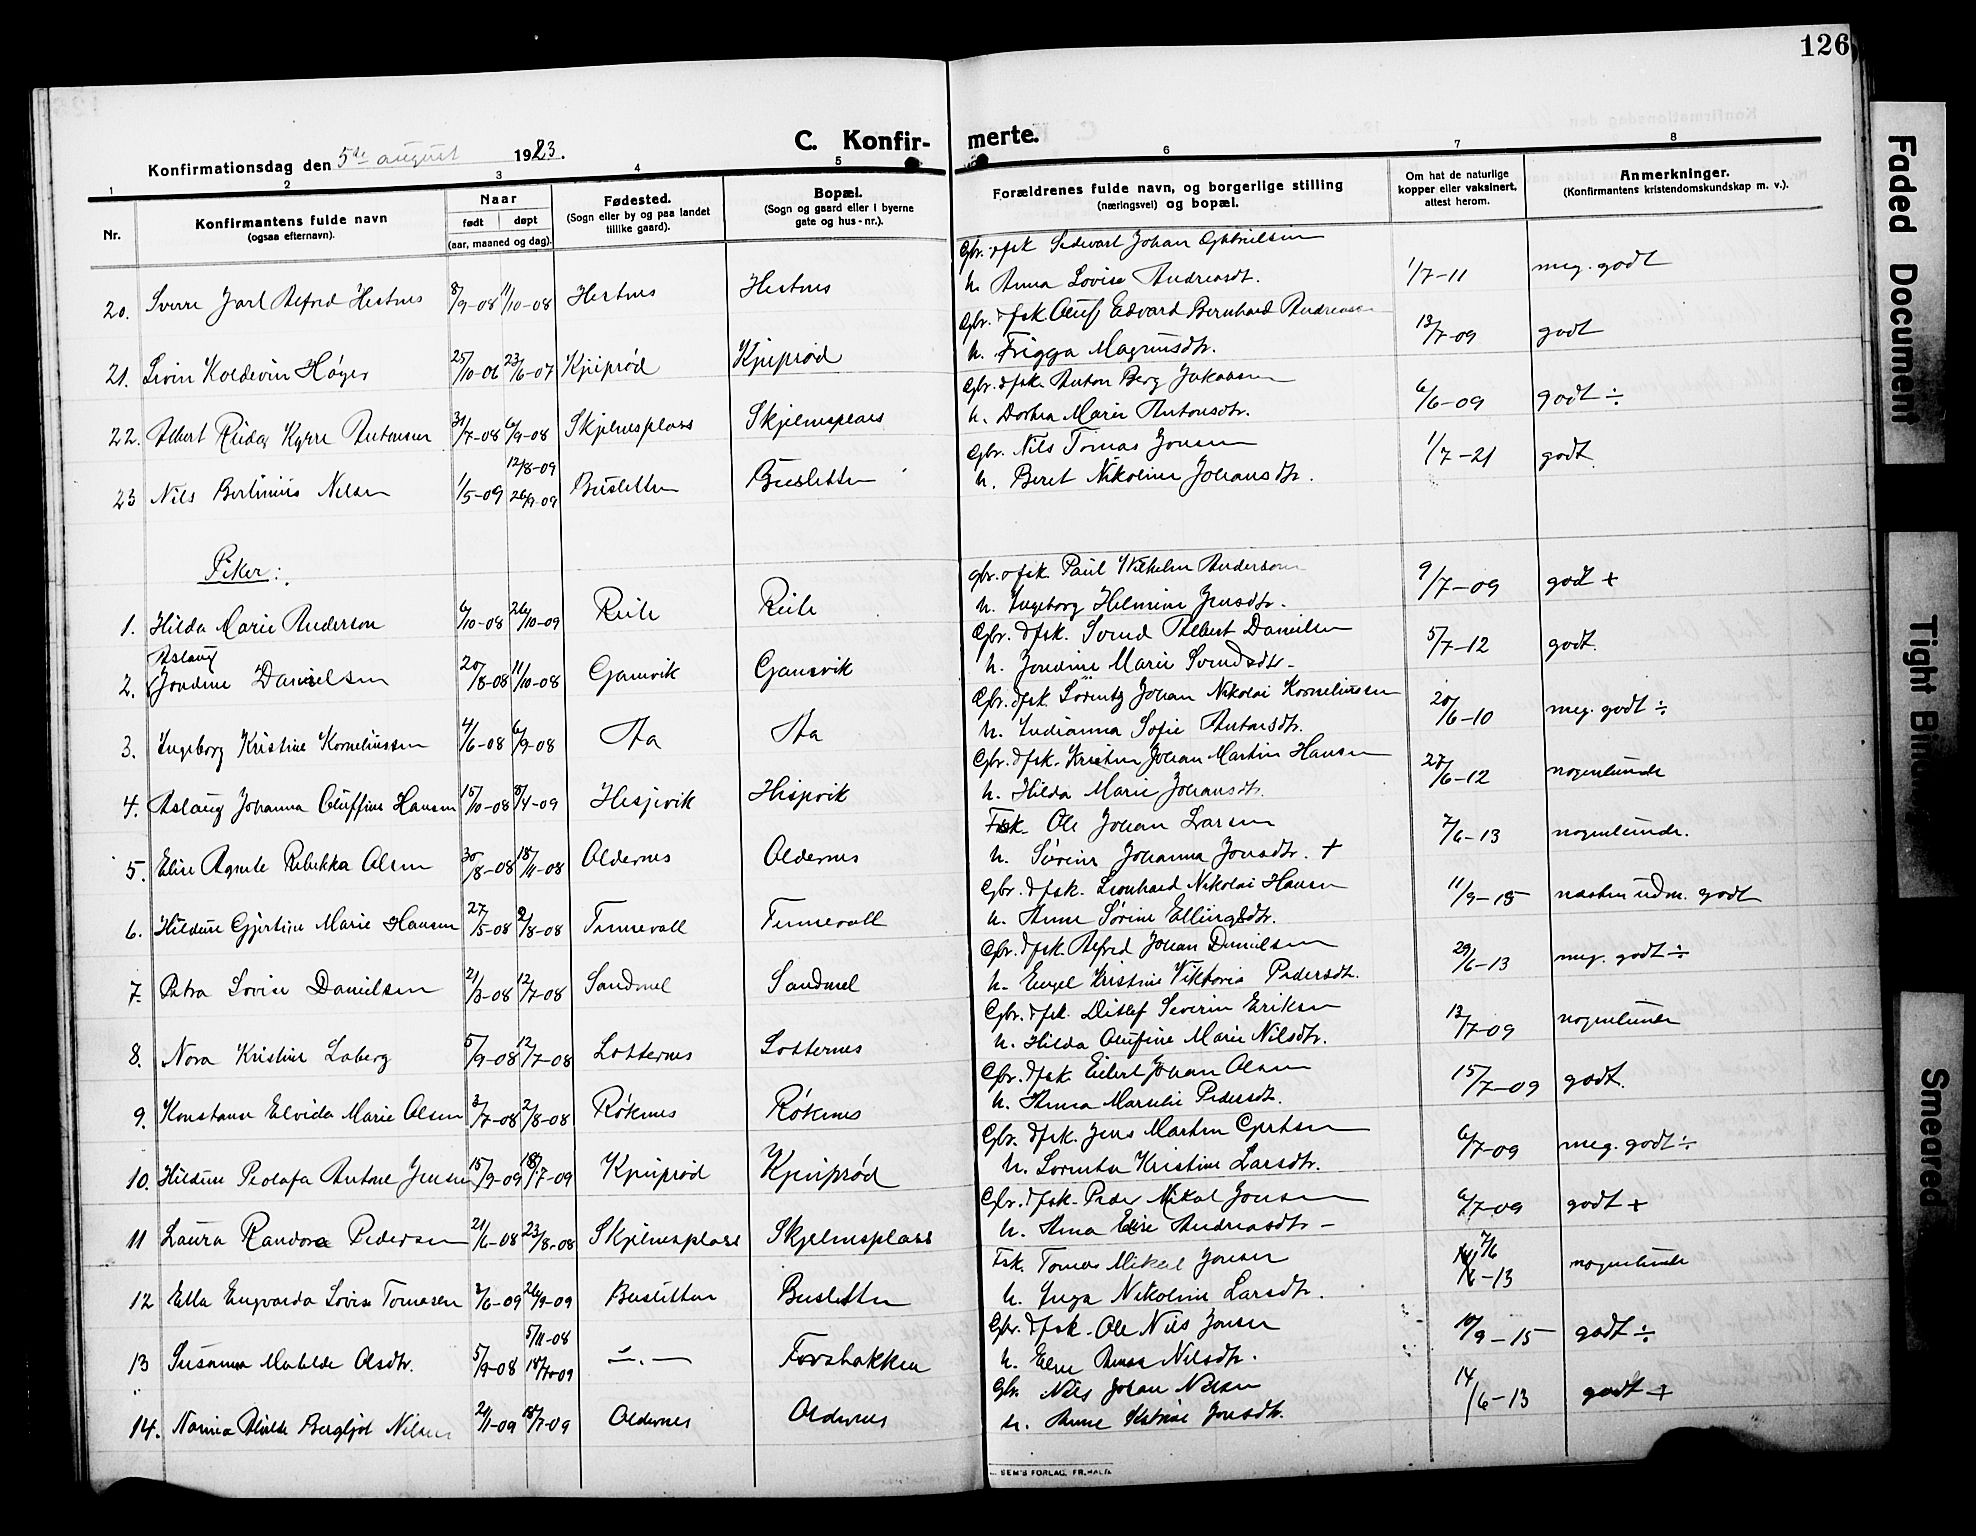 126
C. Konfir-
merte.
Konfirmationsdag den 5te august 1923.
1 2 3 4 5 6 7 8
Nr.
Konfirmantens fulde navn
(ogsaa efternavn).
Naar
født døpt
(aar, maaned og dag).
Fødested.
(Sogn eller by og paa landet
tillike gaard).
Bopæl.
(Sogn og gaard eller i byerne
gate og hus-nr.).
Forældrenes fulde navn, og borgerlige stilling
(næringsvei) og bopæl.
Om hat de naturlige
kopper eller vaksinert,
attest herom.
Anmerkninger.
(Konfirmantens kristendomskundskap m. v.).
Gbr. o fsk Sedevart Johan Gabrielsen
20. Sverre Jarl Alfred Hestnes 8/9-08 11/10-08 Hestnes Hestnes h. Anna Lovise Andreasdt. 1/7-11 meg. godt
Gbr. & fsk. Oluf Edvard Bernhard Andreasen
21. Sivin Koldevin Høyer 25/10-06 23/6-07 Kjeiprød Kjeiprød h. Frigga Magnusdtr. 13/7-09 godt
Gbr. & fsk. Anton Berg Jakobsen
22. Albert Reidar Kyrre Antonsen 31/7-08 6/9-08 Skjelnesplass Skjelnesplass h. Dorthea Marie Antonsdtr. 6/6-09 godt ÷
12/8-09
Gbr. Nils Tomas Jonsen
23 Nils Bertinius Nilsen 1/5-09 26/9-09 Busletten Busletten h. Beret Nikoline Johansdtr. 1/7-21 godt.
Piker:
gbr. o fsk. Paul Wilhelm Anderson
1. Hilda Marie Anderson 6/10-08 26/10-09 h. Ingeborg Helmine Jensdtr. 9/7-09 godt +
Aslaug
Gbr. & fsk. Svend Albert Danielsen
2. Jondine Danielsen 20/8-08 11/10-08 Gamvik Gamvik h. Jondine Marie Svendsdtr. 5/7-12 godt.
Gbr. & fsk. Lorentz Johan Nikolai Korneliussen
3. Ingeborg Kristine Korneliussen 4/6-08 6/9-08 Aa Aa h. Indianna Sofie Antonsdtr. 20/6-10 meg. godt ÷
Gbr. & fsk. Kristen Johan Martin Hansen
4. Aslaug Johanna Oluffine Hansen 15/10-08 8/4-09 Hesjevik Hesjevik h. Hilda Marie Johansdtr. 27/6-12 nogenlunde
Fsk. Ole Johan Larsen
5. Elise Agnete Rebekka Olsen 30/8-08 18/11-08 Oldernes Oldernes h. Sørine Johanna Jonsdtr. + 7/6-13 nogenlunde.
Gbr. & fsk. Leonhard Nikolai Hansen
6. Hildine Gjertine Marie Hansen 27/5-08 2/8-08 Finnevoll Finnevoll h. Anne Sørine Ellingsdtr. 11/9-15 næsten udm. godt
Gbr. & fsk. Alfred Johan Danielsen
7. Petra Lovise Danielsen 21/3-08 12/7-08 Sandmel Sandmel h. Engel Kristine Viktoria Pedersdtr. 29/6-13 meg. godt ÷
Gbr. & fsk. Ditlef Severin Eriksen
8. Nora Kristine Laberg 5/9-08 12/7-08 Lotternes Lotternes h. Hilda Olufine Marie Nilsdtr. 13/7-09 nogenlunde
Gbr. & fsk. Eilert Johan Olsen
9. Konstanse Elvida Marie Olsen 3/7-08 2/8-08 Røkenes Røkenes h. Anna Marselie Pedersdt. 15/7-09 godt.
Gbr. & fsk. Jens Martin Gjertsen
10. Hildine Peolafa Antone Jensen 15/9-09 18/7-09 Kjeiprød Kjeiprød h. Lorentse Kristine Larsdtr. 6/7-09 meg. godt ÷
Gbr. & fsk. Peder Mikal Jonsen
11 Laura Randora Pedersen 21/6-08 23/8-08 Skjelnesplass Skjelnesplass h. Anna Elise Andreasdtr 6/7-09 godt +
Fsk. Tomas Mikal Jonsen 7/6
12 Ella Engvarda Lovise Tomasen 2/6-09 26/9-09 Busletten Busletten h. Inga Nikoline Larsdtr. 6-13 nogenlunde
5/11-08
Gbr. & fsk. Ole Nils Jonsen
13 Susanna Matilde Olsdtr. 5/9-08 18/7-09 —"— Forsbakken h. Elen Anna Nilsdtr. 10/9-15 godt ÷
Gbr. Nils Johan Nilsen
14. Narina Alvilde Bergljot Nilsen 21/1-09 18/7-09 Oldernes Oldernes h. Anne Katrine Jonsdtr. 14/6-13 godt +
SEM'S FORLAG, FR.HALD.
Faded Document
Tight Bin
Smeared